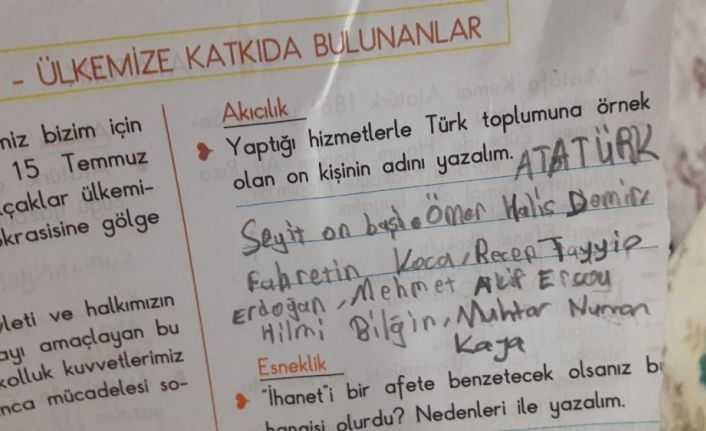 - ÜLKEMİZE KATKIDA BULUNANLAR
niz bizim için
15 Temmuz
çaklar ülkemi-
krasisine gölge
leti ve halkımızın
ayı amaçlayan bu
kolluk kuvvetlerimiz
nca mücadelesi so-
Akıcılık
Yaptığı hizmetlerle Türk toplumuna örnek
olan on kişinin adını yazalım. ATATÜRK
Seyit on başı Ömer Halis Demir
Fahretin Koca, Recep Tayyip
Erdoğan, Mehmet Akif Ersoy
Hilmi Bilgin, Muhtar Numan
Kaya
Esneklik
"İhanet"i bir afete benzetecek olsanız b
hangisi olurdu? Nedenleri ile yazalım.